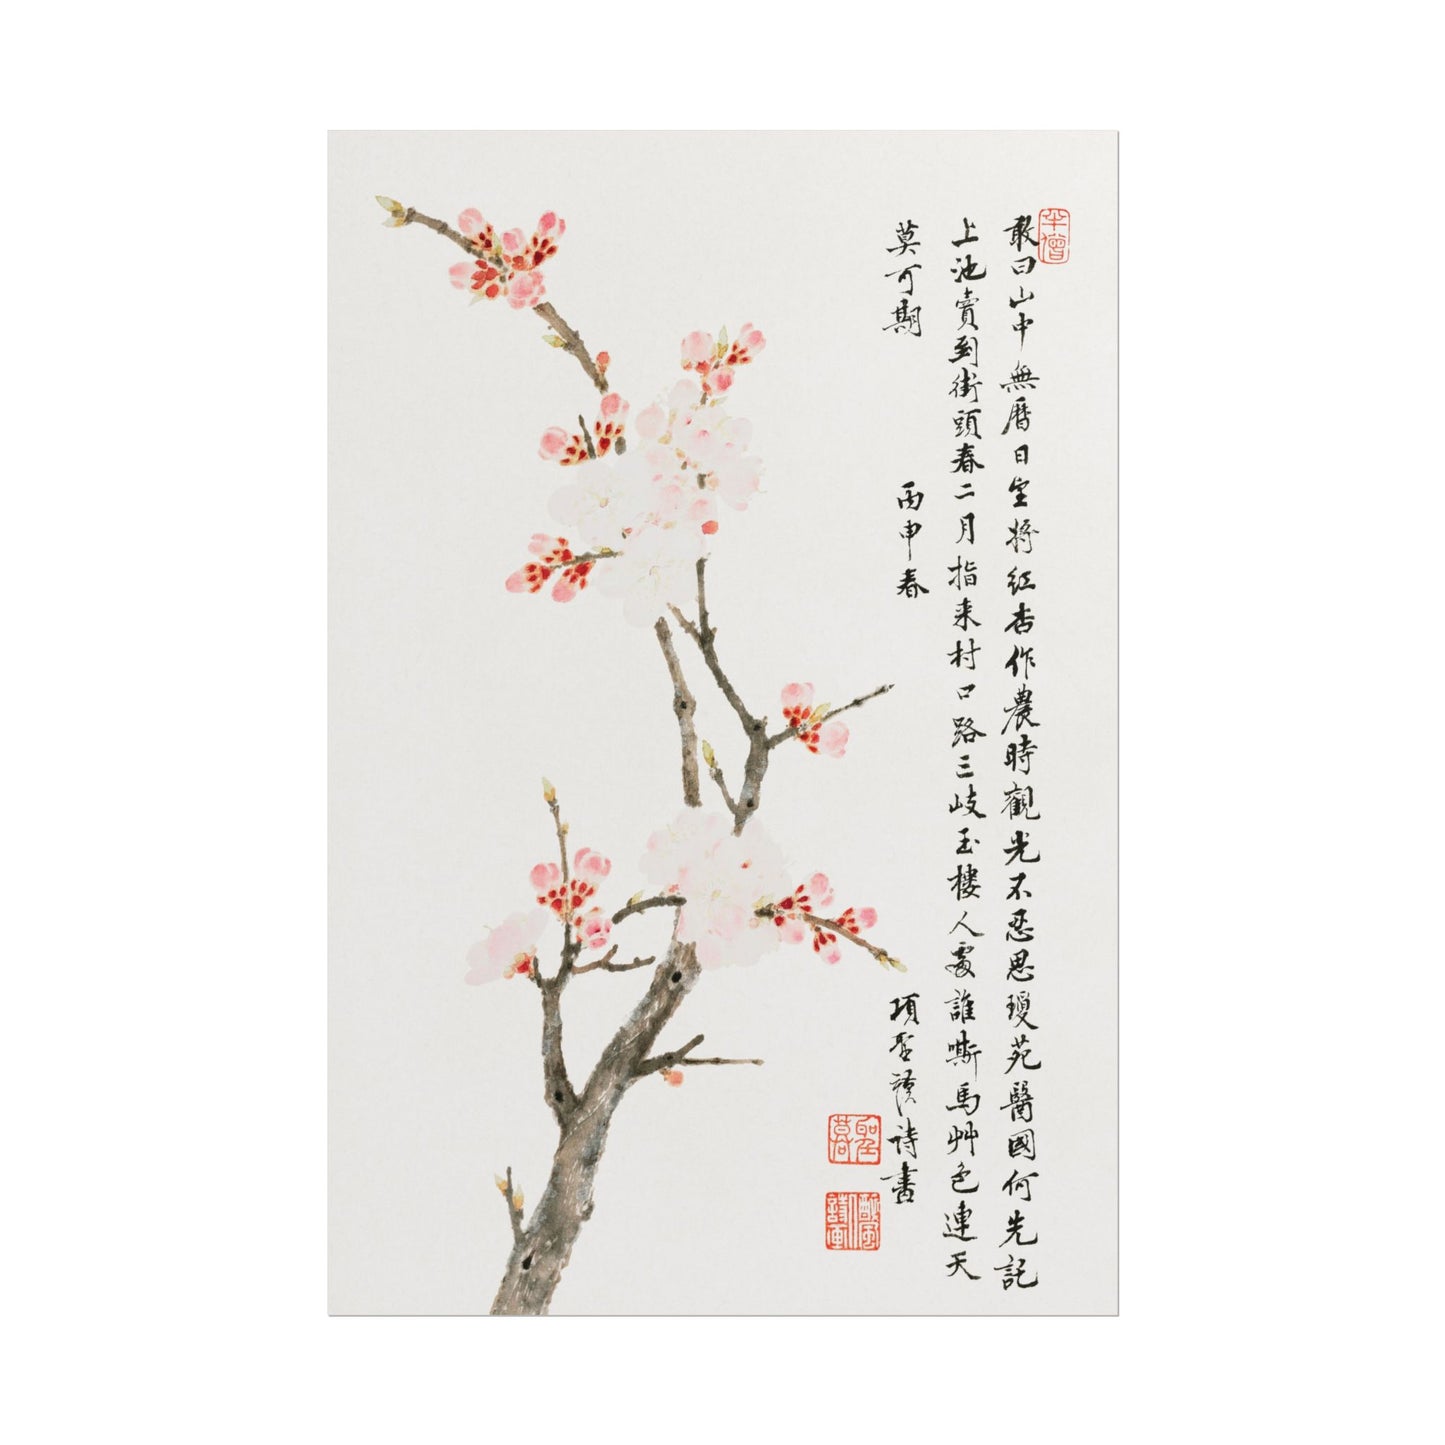 敢曰山中無曆日皇將紅杏作農時觀光不忍思瓊苑醫國何先託
上池賣到街頭春二月指来村口路三岐玉樓人處誰嘶馬艸色連天
莫可期
丙申春
項聖謨詩畫